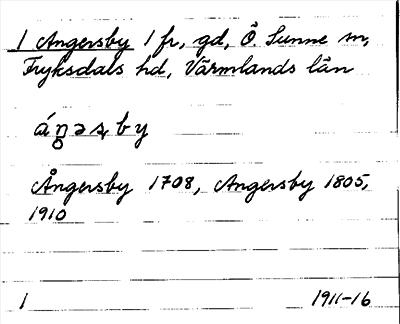 1 Angersby 1 fr, gd, Ö. Sunne sn,
Fryksdals hd, Värmlands län
áŋəʂby
Ångersby 1708, Angersby 1805,
1910
1 1911-16